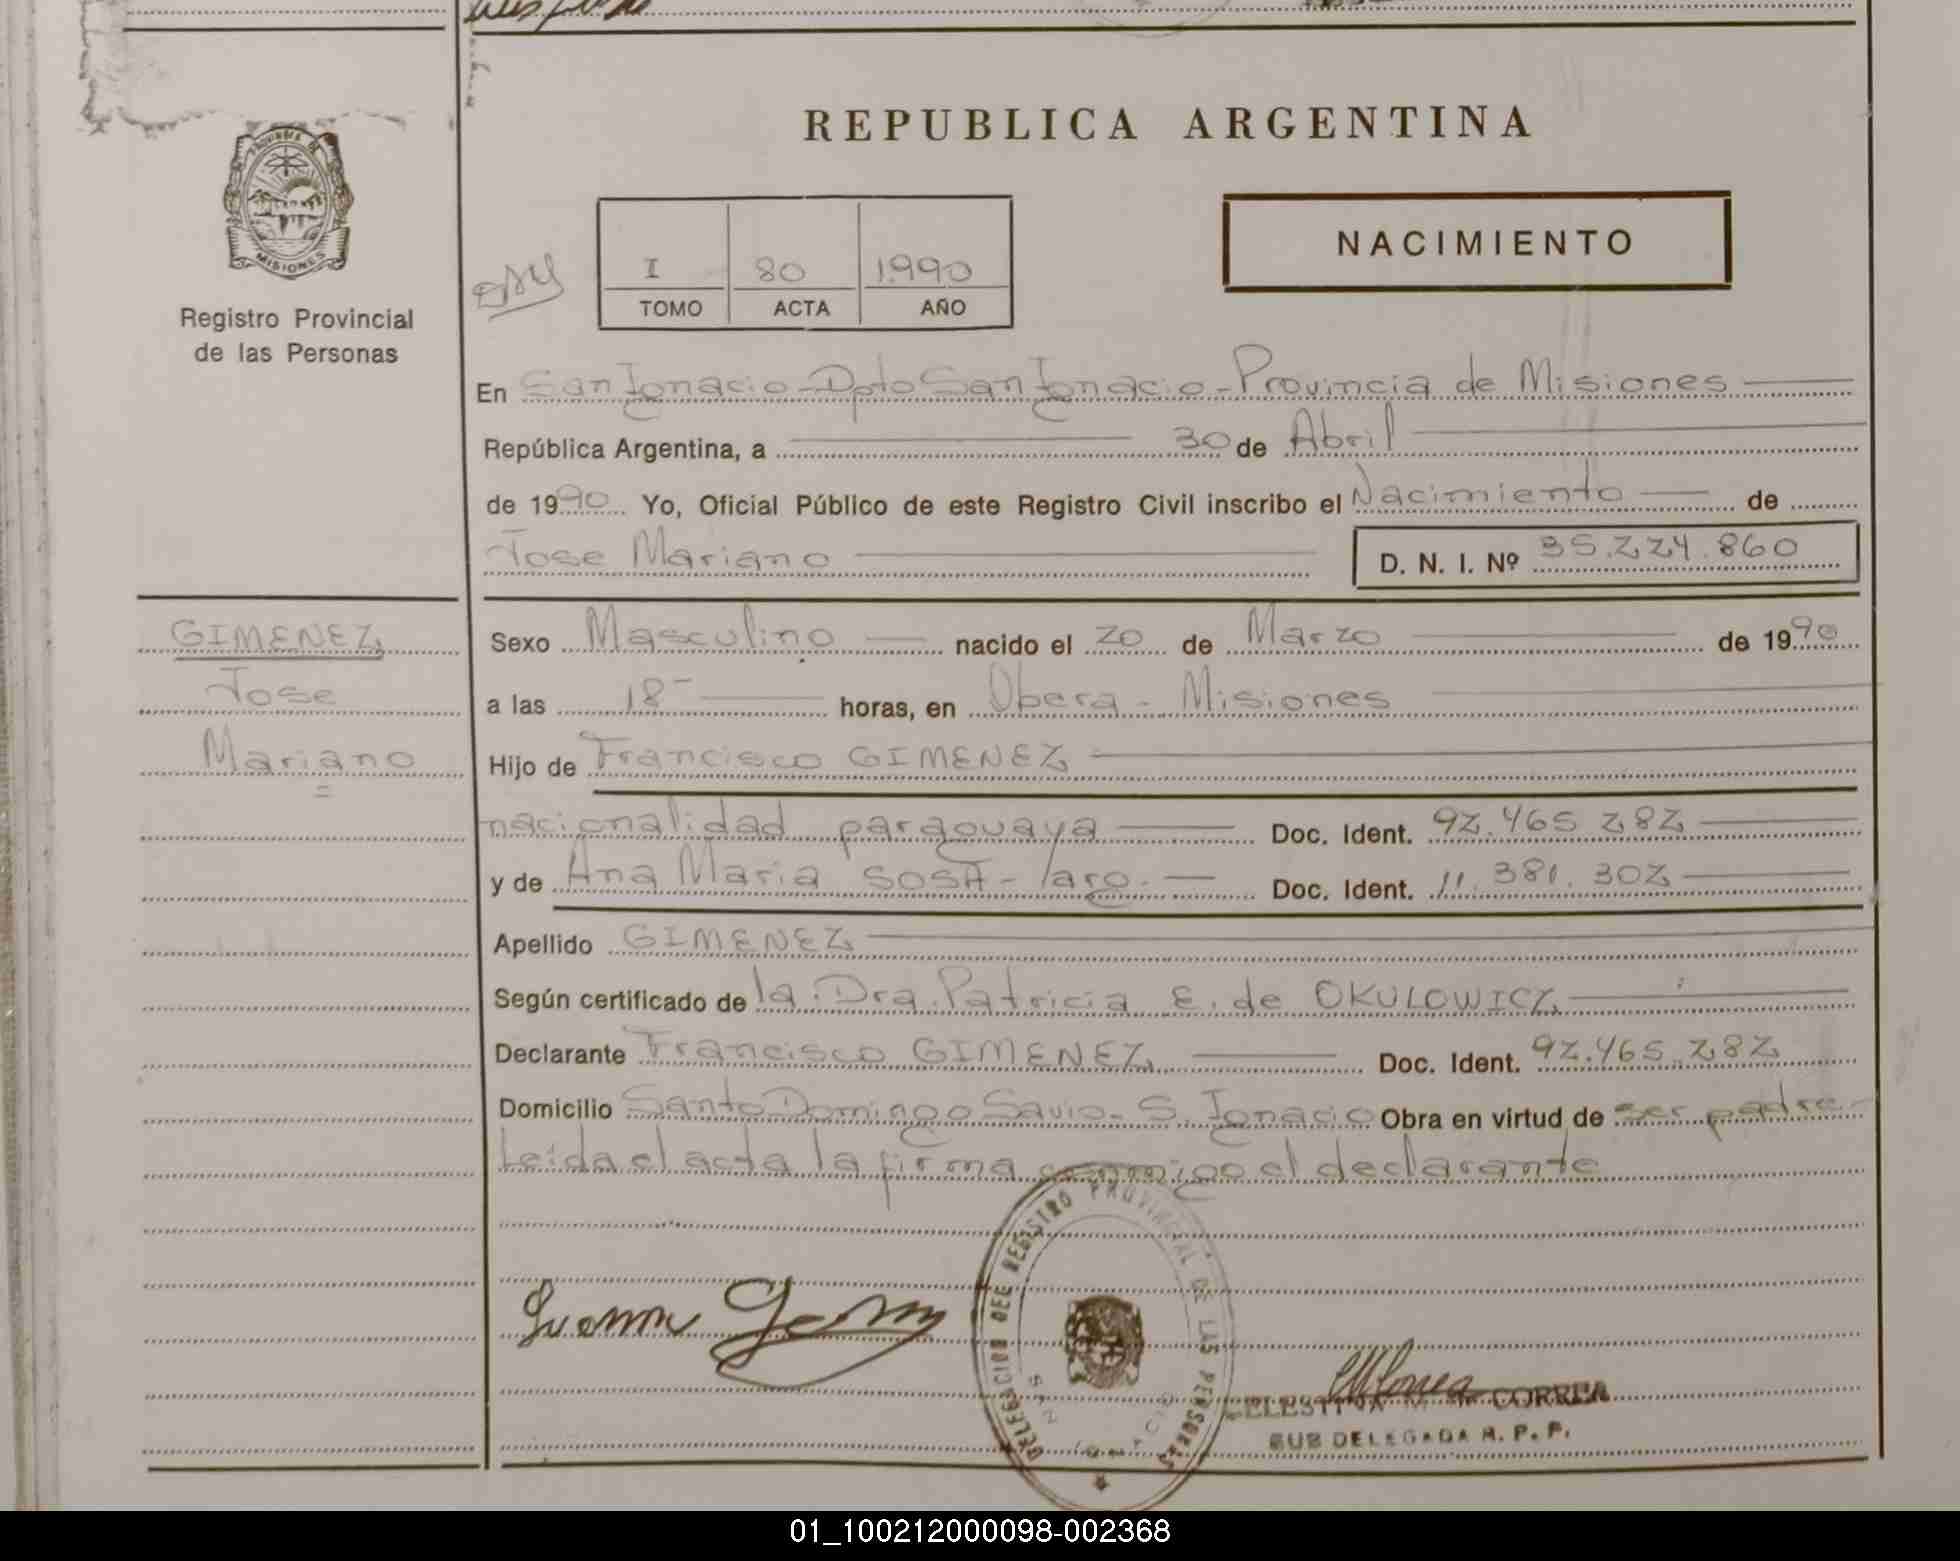 REPUBLICA ARGENTINA
PROVINCIA DE
MISIONES
Registro Provincial
de las Personas
I 80 1990
TOMO ACTA AÑO
NACIMIENTO
En San Ignacio - Dpto San Ignacio - Provincia de Misiones
República Argentina, a 30 de Abril
de 1990 Yo, Oficial Público de este Registro Civil inscribo el Nacimiento de
Jose Mariano D. N. I. Nº 35.224.860
GIMENEZ
Jose
Mariano
Sexo Masculino nacido el 20 de Marzo de 1990
a las 18 horas, en Obera - Misiones
Hijo de Francisco GIMENEZ
nacionalidad paraguaya Doc. Ident. 92.465 282
y de Ana Maria SOSA - /arg. Doc. Ident. 11.381.302
Apellido GIMENEZ
Según certificado de la Dra. Patricia E. de OKULOWICZ
Declarante Francisco GIMENEZ Doc. Ident. 92.465.282
Domicilio Santo Domingo Savio - S. Ignacio Obra en virtud de ser padre -
Leida el acta la firma conmigo el declarante
DELEGACION DEL REGISTRO PROVINCIAL DE LAS PERSONAS
SAN IGNACIO
CELESTINA CORREA
SUB DELEGADA R. P. P.
01_100212000098-002368